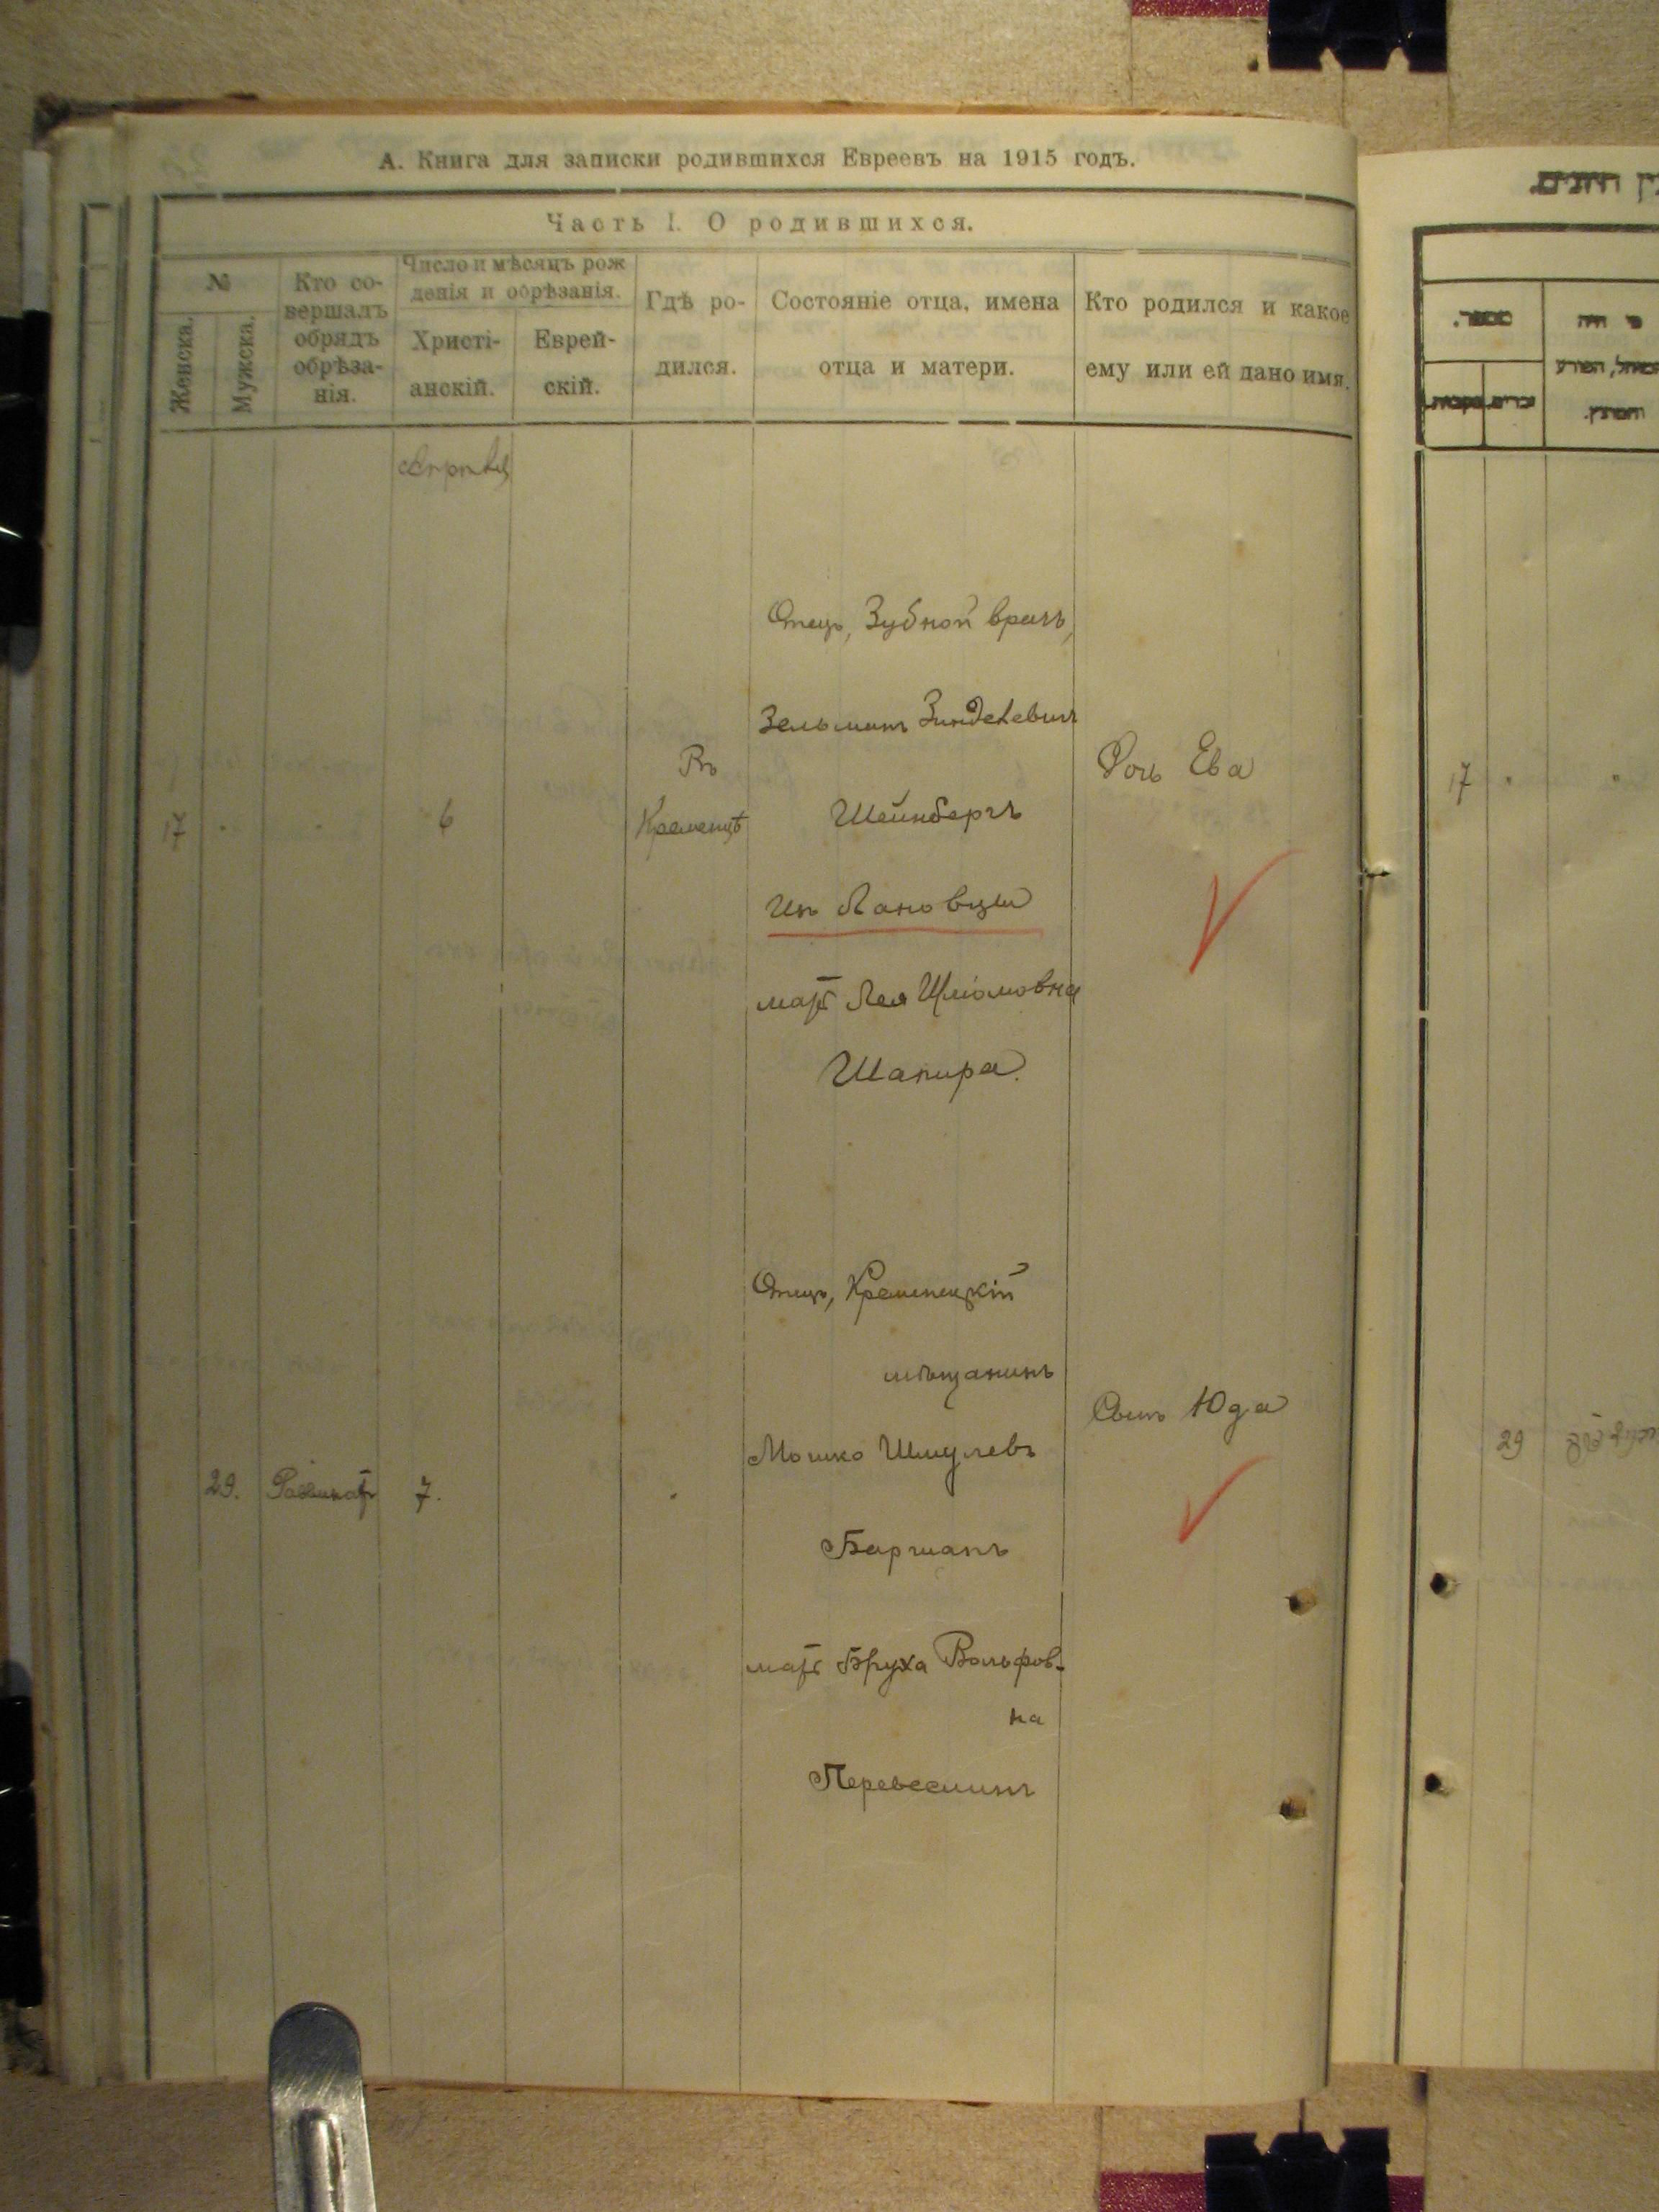 А. Книга для записки родившихся Евреевъ на 1915 годъ.
Часть I. О родившихся.
№
Женска.
Мужска.
Кто со-
вершалъ
обрядъ
обрѣза-
нія.
Число и мѣсяцъ рож
денія и обрѣзанія.
Христі-
анскій.
Еврей-
скій.
Гдѣ ро-
дился.
Состояніе отца, имена
отца и матери.
Кто родился и какое
ему или ей дано имя.
17
6
Въ
Кременцѣ
Отецъ, Зубной врачъ,
Зельманъ
Шейнбергъ
Изъ Лановцы
мать Лея Шліомовна
Шапира.
Дочь Ева
29.
7.
Отецъ, Кременецкій
мѣщанинъ
Мошко Шмулевъ
мать Бруха Вольфов-
на
Сынъ Юда
17
29